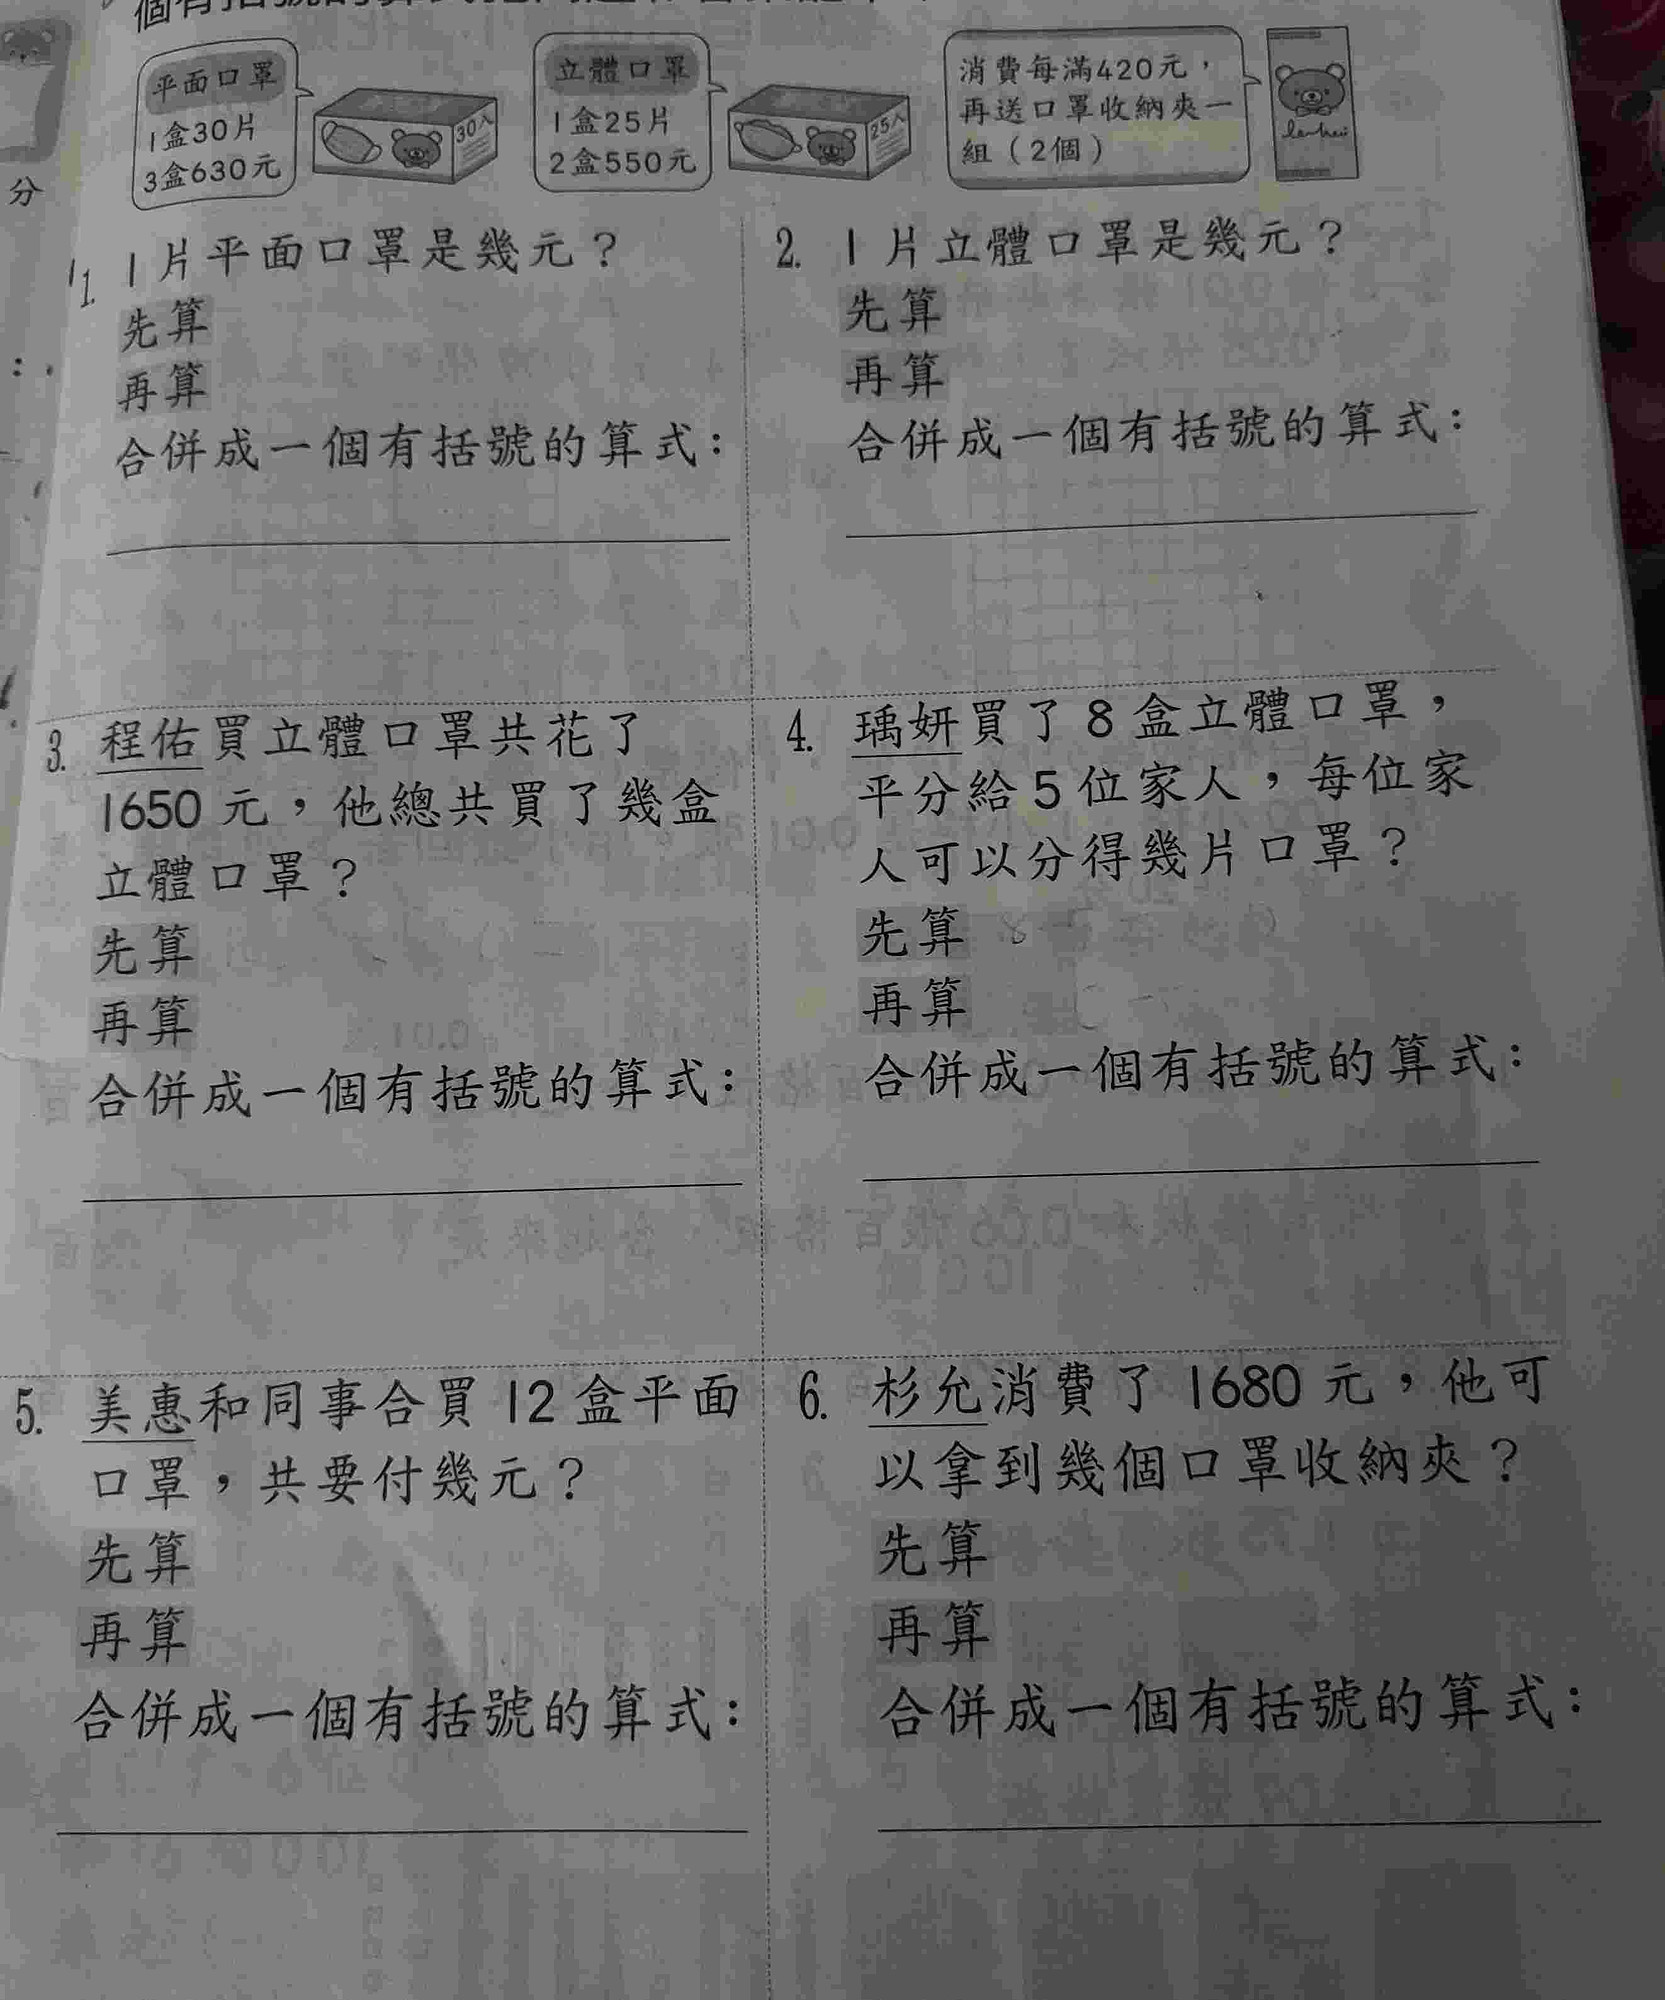 分
平面口罩
1盒30片
3盒630元
30入
立體口罩
1盒25片
2盒550元
25入
消費每滿420元，
再送口罩收納夾一
組（2個）
1. 1片平面口罩是幾元？
先算
再算
合併成一個有括號的算式：
2. 1片立體口罩是幾元？
先算
再算
合併成一個有括號的算式：
3. 程佑買立體口罩共花了
1650元，他總共買了幾盒
立體口罩？
先算
再算
合併成一個有括號的算式：
4. 瑀妍買了8盒立體口罩，
平分給5位家人，每位家
人可以分得幾片口罩？
先算
再算
合併成一個有括號的算式：
5. 美惠和同事合買12盒平面
口罩，共要付幾元？
先算
再算
合併成一個有括號的算式：
6. 杉允消費了1680元，他可
以拿到幾個口罩收納夾？
先算
再算
合併成一個有括號的算式：